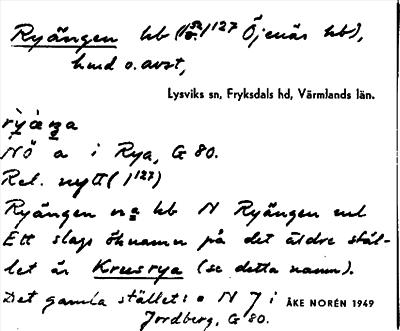 Ryängen hb (1/127 Öjenäs hb),
hmd o. avst,
Lysviks sn, Fryksdals hd, Värmlands län.
NÖ a i Rya, G 80.
Rel. nytt (1/127)
Ryängen hb N Ryängen enl
Ett slags öknamn på det äldre stäl-
let är Krusrya (se detta namn).
Det gamla stället: o N J i
Jordberg, G 80.
ÅKE NORÉN 1949